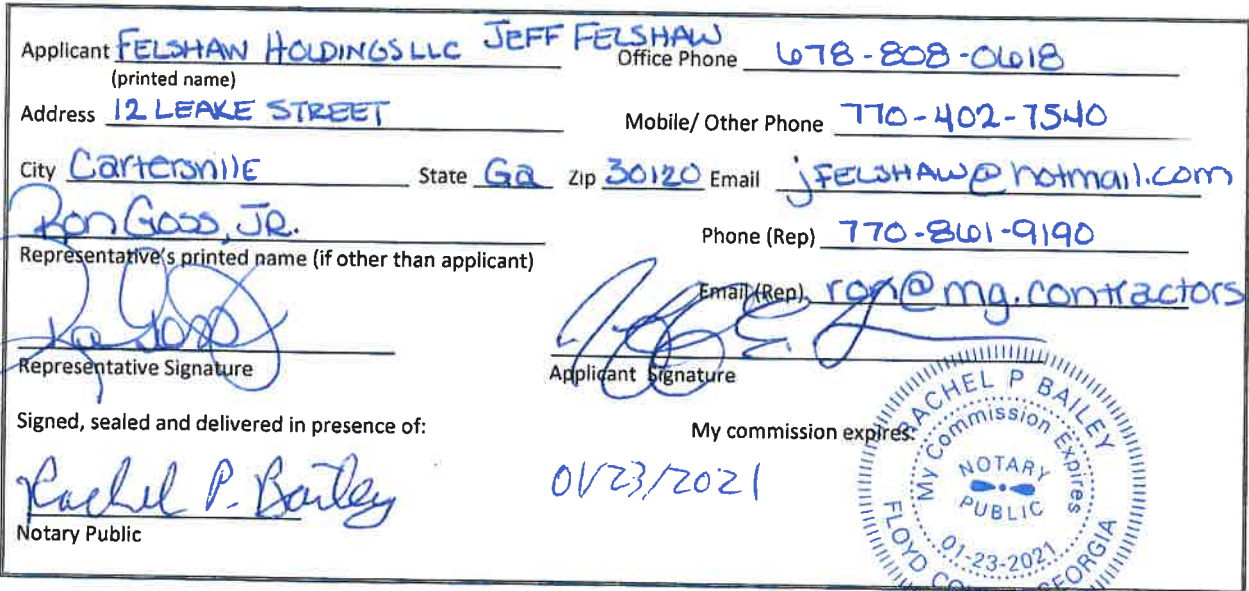 Applicant FELSHAW HOLDINGS LLC JEFF FELSHAW Office Phone 678-808-0618
(printed name)
Address 12 LEAKE STREET Mobile/ Other Phone 770-402-7540
City Cartersville State Ga Zip 30120 Email jFELSHAW@hotmail.com
Ron Goss, JR. Phone (Rep) 770-861-9190
Representative's printed name (if other than applicant)
Email (Rep) ron@mg.contractors
Representative Signature Applicant Signature
Signed, sealed and delivered in presence of: My commission expires:
Rachel P. Bailey 01/23/2021
Notary Public
RACHEL P BAILEY
My Commission Expires
NOTARY
PUBLIC
01-23-2021
FLOYD COUNTY GEORGIA